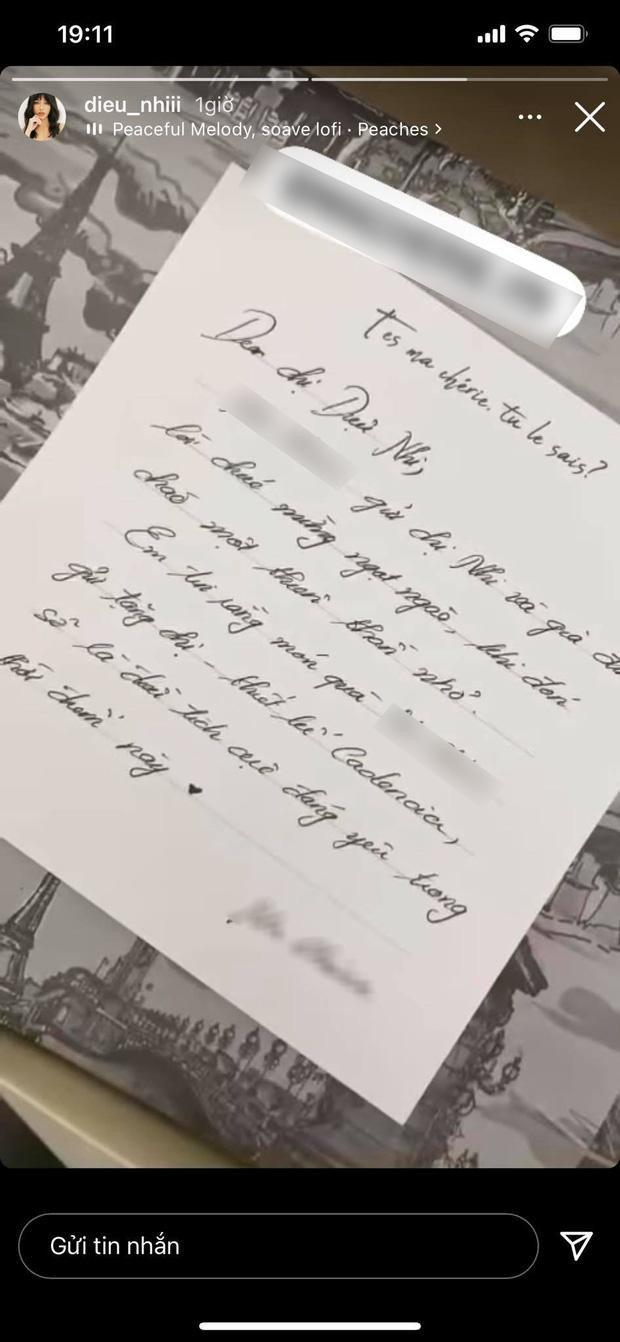 19:11
dieu_nhiii 1giờ
Peaceful Melody, soave lofi · Peaches >
T'es ma chérie. tu le sais?
Dear chị Diệu Nhi,
gửi chị Nhi và gia
lời chúc mừng ngọt ngào, khi đón
chào một thiên thần nhỏ.
Em tin rằng món quà
gửi tặng chị - thiết kế Cadencia,
sẽ là dấu tích cực đáng yêu trong
thời điểm này ♥
Gửi tin nhắn